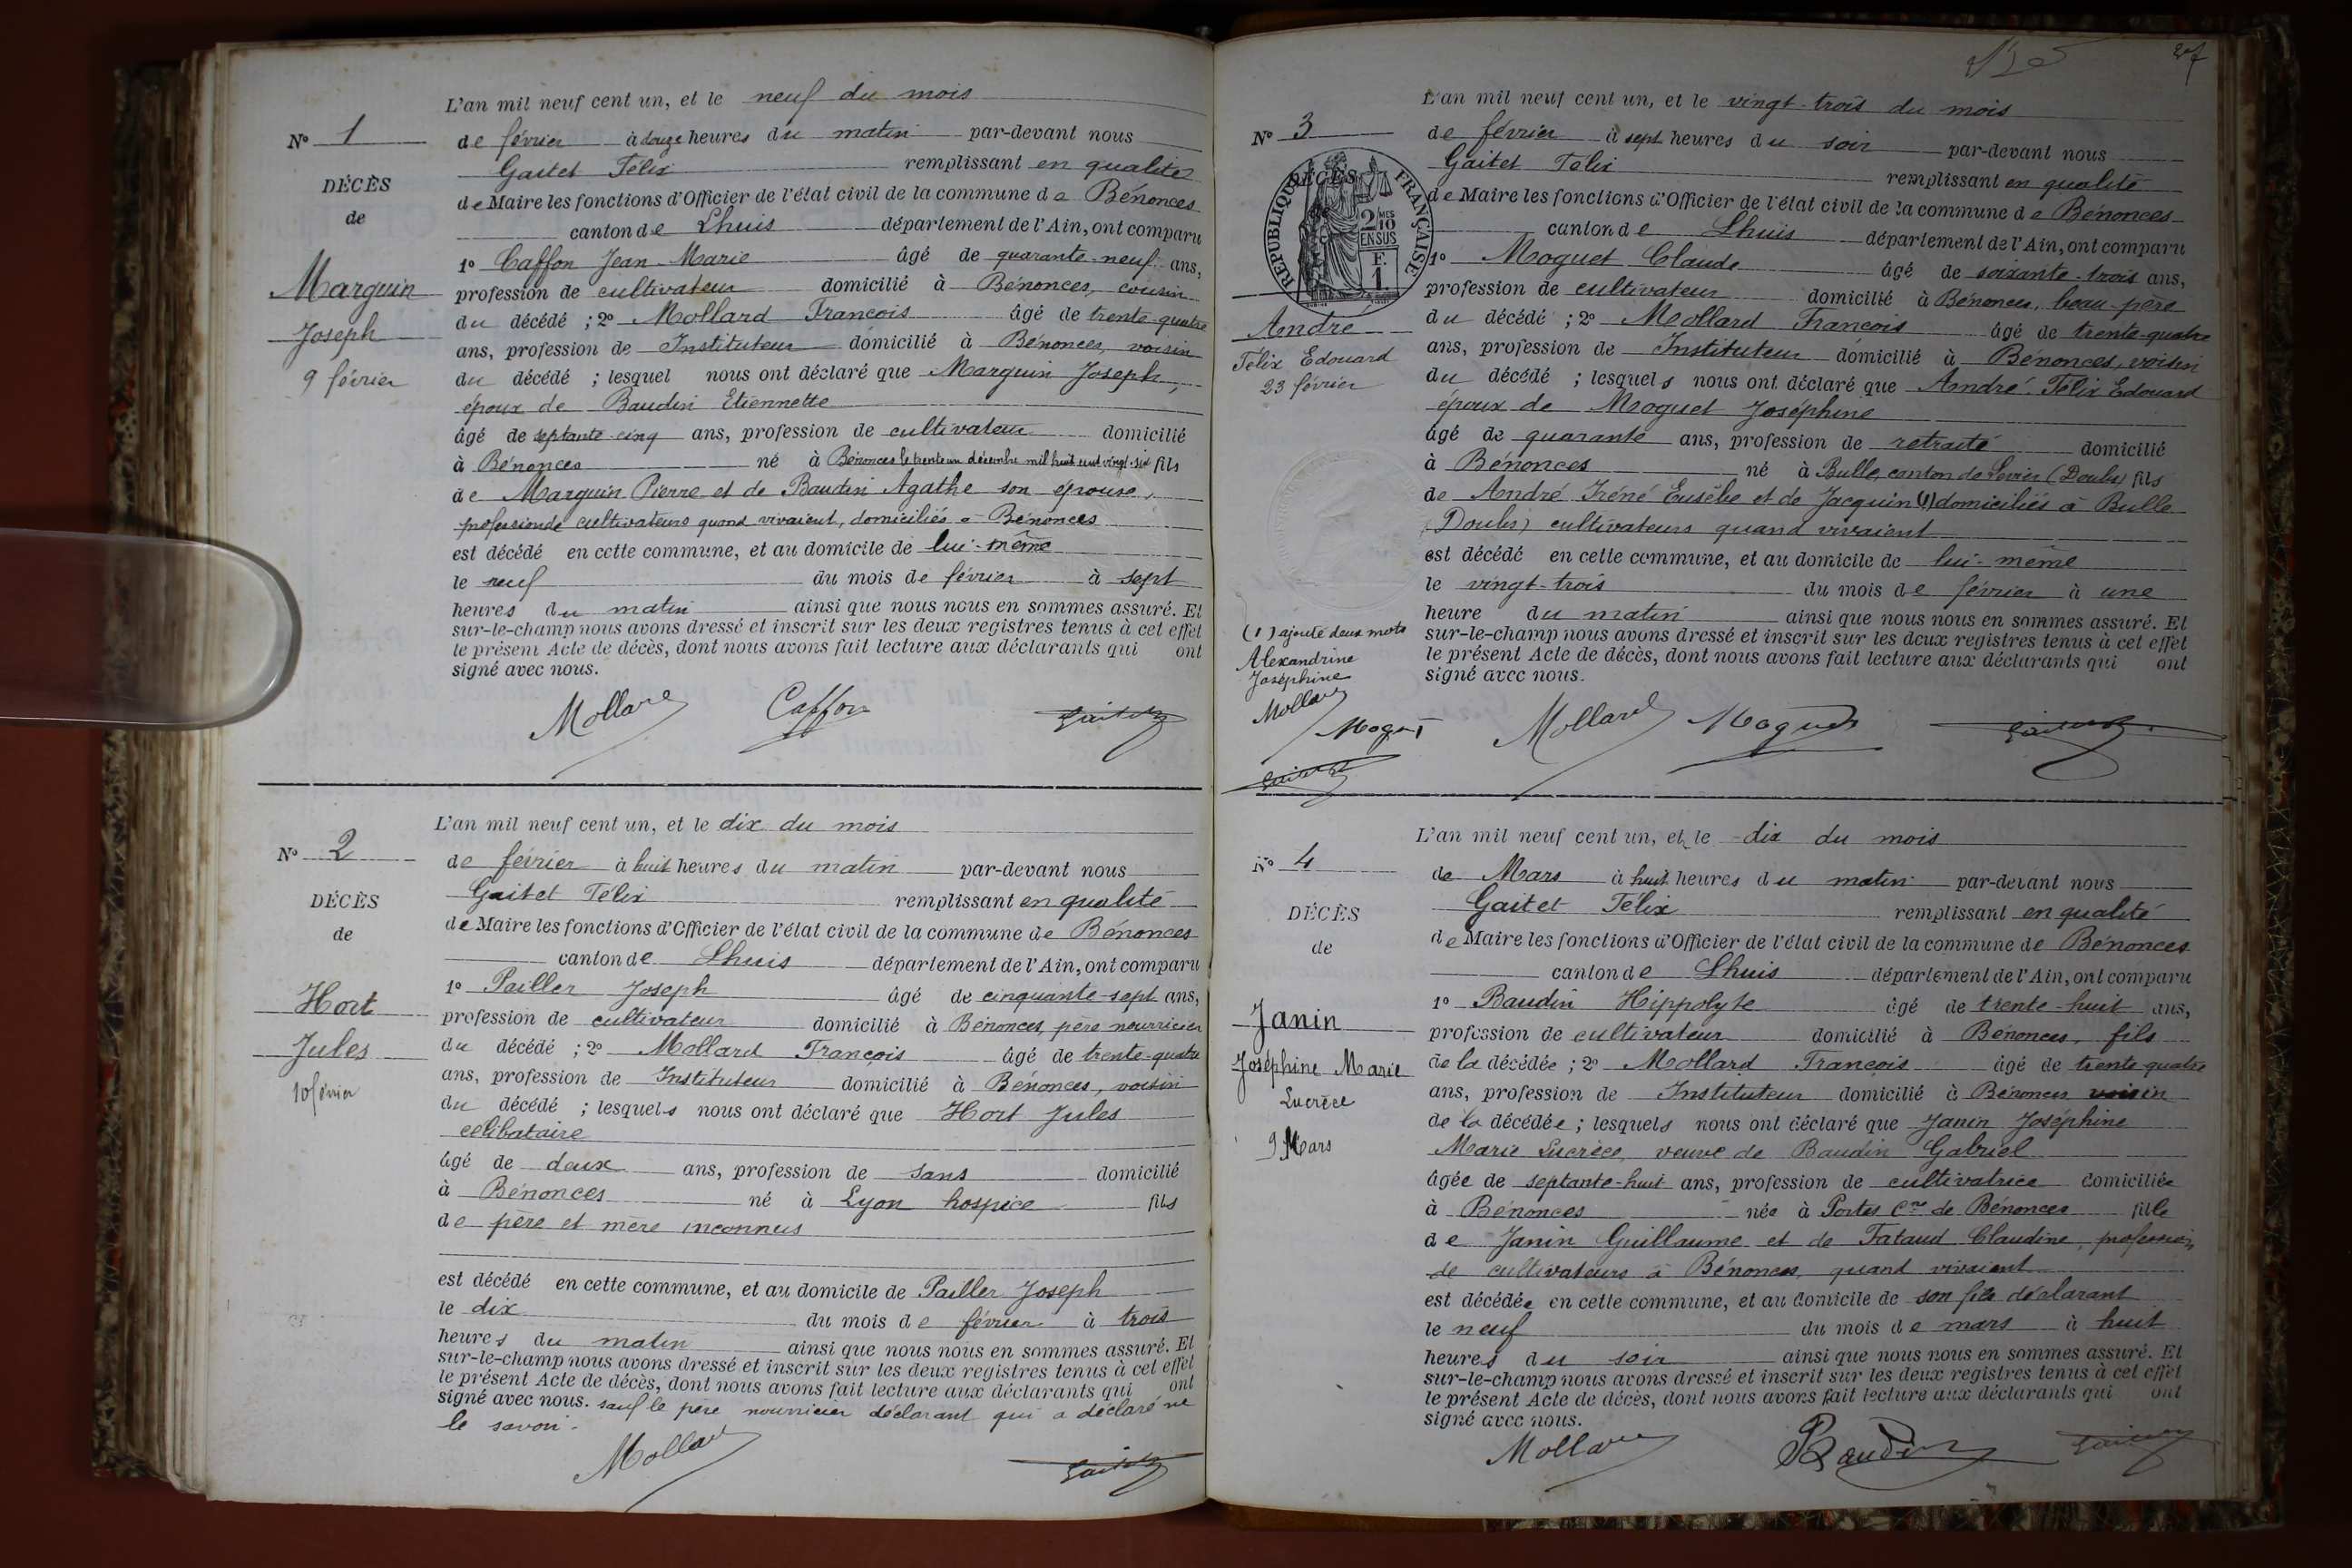 N° 1
DÉCÈS
de
Marguin
Joseph
9 février
L'an mil neuf cent un, et le neuf du mois
de février à douze heures du matin par-devant nous
Gaitet Félix remplissant en qualité
de Maire les fonctions d'Officier de l'état civil de la commune de Bénonces
canton de Lhuis département de l'Ain, ont comparu
1° Caffon Jean Marie âgé de quarante-neuf ans,
profession de cultivateur domicilié à Bénonces, cousin
du décédé ; 2° Mollard François âgé de trente-quatre
ans, profession de Instituteur domicilié à Bénonces, voisin
du décédé ; lesquel nous ont déclaré que Marguin Joseph,
époux de Baudin Etiennette
âgé de septante-cinq ans, profession de cultivateur domicilié
à Bénonces né à Bénonces le trente un décembre mil huit cent vingt-six fils
de Marguin Pierre et de Baudin Agathe son épouse,
profession de cultivateurs quand vivaient, domiciliés à Bénonces
est décédé en cette commune, et au domicile de lui-même
le neuf du mois de février à sept
heures du matin ainsi que nous nous en sommes assuré. Et
sur-le-champ nous avons dressé et inscrit sur les deux registres tenus à cet effet
le présent Acte de décès, dont nous avons fait lecture aux déclarants qui ont
signé avec nous.
Mollard Caffon Gaitet
N° 2
DÉCÈS
de
Hort
Jules
10 février
L'an mil neuf cent un, et le dix du mois
de février à huit heures du matin par-devant nous
Gaitet Félix remplissant en qualité
de Maire les fonctions d'Officier de l'état civil de la commune de Bénonces
canton de Lhuis département de l'Ain, ont comparu
1° Pailler Joseph âgé de cinquante-sept ans,
profession de cultivateur domicilié à Bénonces, père nourricier
du décédé ; 2° Mollard François âgé de trente-quatre
ans, profession de Instituteur domicilié à Bénonces, voisin
du décédé ; lesquels nous ont déclaré que Hort Jules
célibataire
âgé de deux ans, profession de sans domicilié
à Bénonces né à Lyon hospice fils
de père et mère inconnus
est décédé en cette commune, et au domicile de Pailler Joseph
le dix du mois de février à trois
heures du matin ainsi que nous nous en sommes assuré. Et
sur-le-champ nous avons dressé et inscrit sur les deux registres tenus à cet effet
le présent Acte de décès, dont nous avons fait lecture aux déclarants qui ont
signé avec nous. sauf le père nourricier déclarant qui a déclaré ne
le savoir.
Mollard Gaitet
N° 3
DÉCÈS
RÉPUBLIQUE FRANÇAISE
2/10 MES EN SUS
F. 1
André
Félix Edouard
23 février
(1) ajouté deux mots
Alexandrine
Joséphine
Mollard
Moguet
Gaitet
L'an mil neuf cent un, et le vingt-trois du mois
de février à sept heures du soir par-devant nous
Gaitet Félix remplissant en qualité
de Maire les fonctions d'Officier de l'état civil de la commune de Bénonces
canton de Lhuis département de l'Ain, ont comparu
1° Moguet Claude âgé de soixante-trois ans,
profession de cultivateur domicilié à Bénonces, beau-père
du décédé ; 2° Mollard François âgé de trente-quatre
ans, profession de Instituteur domicilié à Bénonces, voisin
du décédé ; lesquels nous ont déclaré que André Félix Edouard
époux de Moguet Joséphine
âgé de quarante ans, profession de retraité domicilié
à Bénonces né à Bulle, canton de Levier (Doubs) fils
de André Iréné Eusèbe et de Jacquin (1) domiciliés à Bulle
Doubs) cultivateurs quand vivaient
est décédé en cette commune, et au domicile de lui-même
le vingt-trois du mois de février à une
heure du matin ainsi que nous nous en sommes assuré. Et
sur-le-champ nous avons dressé et inscrit sur les deux registres tenus à cet effet
le présent Acte de décès, dont nous avons fait lecture aux déclarants qui ont
signé avec nous.
Mollard Moguet Gaitet
N° 4
DÉCÈS
de
Janin
Joséphine Marie
Lucrèce
9 Mars
L'an mil neuf cent un, et le dix du mois
de Mars à huit heures du matin par-devant nous
Gaitet Félix remplissant en qualité
de Maire les fonctions d'Officier de l'état civil de la commune de Bénonces
canton de Lhuis département de l'Ain, ont comparu
1° Baudin Hippolyte âgé de trente-huit ans,
profession de cultivateur domicilié à Bénonces, fils
de la décédée ; 2° Mollard François âgé de trente-quatre
ans, profession de Instituteur domicilié à Bénonces voisin
de la décédée ; lesquels nous ont déclaré que Janin Joséphine
Marie Lucrèce, veuve de Baudin Gabriel
âgée de septante-huit ans, profession de cultivatrice domiciliée
à Bénonces née à Portes Cne de Bénonces fille
de Janin Guillaume et de Fataud Claudine, profession
de cultivateurs à Bénonces, quand vivaient
est décédée en cette commune, et au domicile de son fils déclarant
le neuf du mois de mars à huit
heures du soir ainsi que nous nous en sommes assuré. Et
sur-le-champ nous avons dressé et inscrit sur les deux registres tenus à cet effet
le présent Acte de décès, dont nous avons fait lecture aux déclarants qui ont
signé avec nous.
Mollard Baudin Gaitet